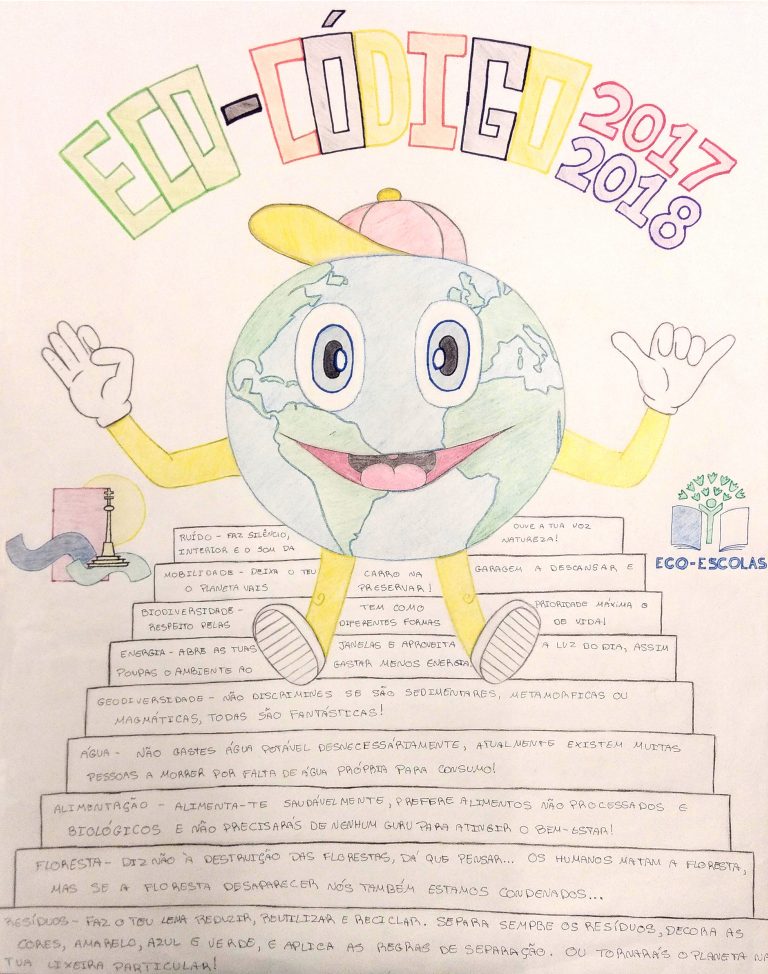 ECO-CÓDIGO
2017
2018
RUÍDO - FAZ SILÊNCIO, OUVE A TUA VOZ
INTERIOR E O SOM DA NATUREZA!
MOBILIDADE - DEIXA O TEU CARRO NA GARAGEM A DESCANSAR E
O PLANETA VAIS PRESERVAR!
BIODIVERSIDADE - TEM COMO PRIORIDADE MÁXIMA O
RESPEITO PELAS DIFERENTES FORMAS DE VIDA!
ENERGIA - ABRE AS TUAS JANELAS E APROVEITA A LUZ DO DIA, ASSIM
POUPAS O AMBIENTE AO GASTAR MENOS ENERGIA.
ECO-ESCOLAS
GEODIVERSIDADE - NÃO DISCRIMINES SE SÃO SEDIMENTARES, METAMORFICAS OU
MAGMÁTICAS, TODAS SÃO FANTÁSTICAS!
ÁGUA - NÃO GASTES ÁGUA POTÁVEL DESNECESSÁRIAMENTE, ATUALMENTE EXISTEM MUITAS
PESSOAS A MORRER POR FALTA DE ÁGUA PRÓPRIA PARA CONSUMO!
ALIMENTAÇÃO - ALIMENTA-TE SAUDÁVELMENTE, PREFERE ALIMENTOS NÃO PROCESSADOS E
BIOLÓGICOS E NÃO PRECISARÁS DE NENHUM GURU PARA ATINGIR O BEM-ESTAR!
FLORESTA - DIZ NÃO À DESTRUIÇÃO DAS FLORESTAS, DÁ QUE PENSAR... OS HUMANOS MATAM A FLORESTA,
MAS SE A FLORESTA DESAPARECER NÓS TAMBÉM ESTAMOS CONDENADOS...
RESÍDUOS - FAZ O TEU LEMA REDUZIR, REUTILIZAR E RECICLAR. SEPARA SEMPRE OS RESÍDUOS, DECORA AS
CORES, AMARELO, AZUL E VERDE, E APLICA AS REGRAS DE SEPARAÇÃO. OU TORNARÁS O PLANETA NA
TUA LIXEIRA PARTICULAR!